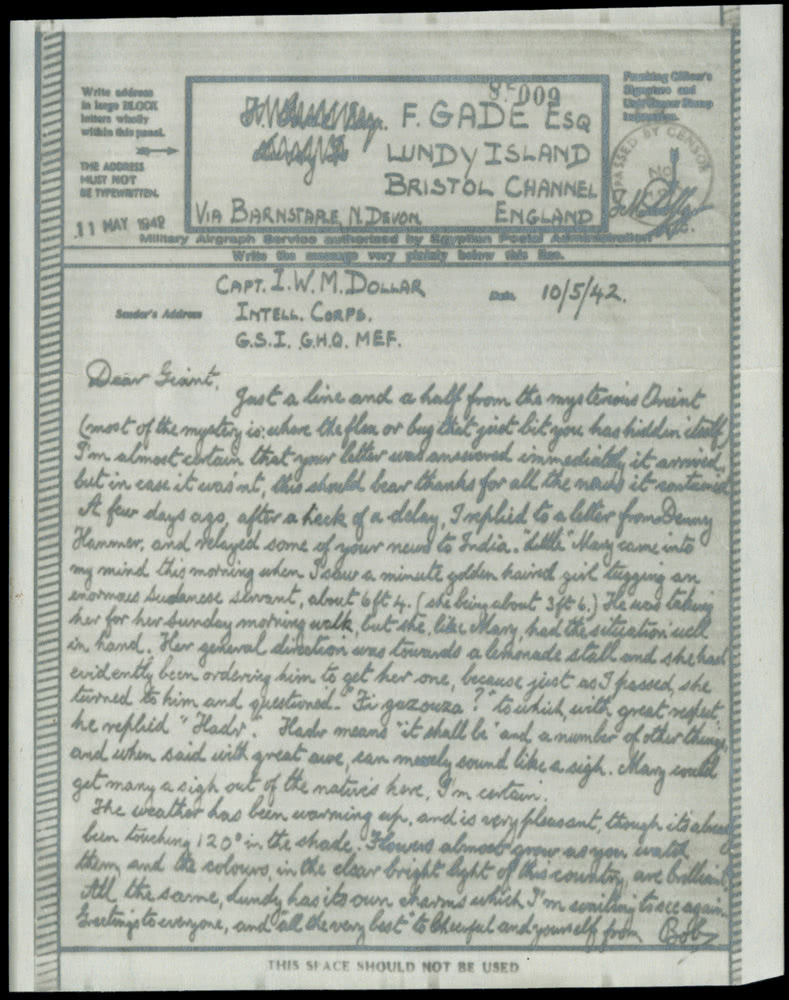 85009
Write address
in large BLOCK
letters wholly
within this panel.
THE ADDRESS
MUST NOT
BE TYPEWRITTEN.
11 MAY 1942
F. GADE ESQ
LUNDY ISLAND
BRISTOL CHANNEL
VIA BARNSTAPLE, N. DEVON ENGLAND
Signature and
PASSED BY CENSOR
No
Military Airgraph Service authorised by Egyptian Postal Administration
Write the message very plainly below this line.
CAPT. I. W. M. DOLLAR
Sender's Address INTELL. CORPS.
Date 10/5/42.
G.S.I. G.H.Q. MEF.
Dear Giant,
Just a line and a half from the mysterious Orient
(most of the mystery is: where the flea or bug that just bit you has hidden itself)
I'm almost certain that your letter was answered immediately it arrived,
but in case it wasn't, this should bear thanks for all the news it contained
A few days ago, after a heck of a delay, I replied to a letter from Denny
Hammer, and relayed some of your news to India. "Little" Mary came into
my mind this morning when I saw a minute golden haired girl tugging an
enormous Sudanese servant, about 6ft 4. (she being about 3ft 6.) He was taking
her for her Sunday morning walk, but she, like Mary, had the situation well
in hand. Her general direction was towards a lemonade stall and she had
evidently been ordering him to get her one, because just as I passed, she
turned to him and questioned. "Fi gazouza?" to which, with great respect,
he replied "Hadr". Hadr means "it shall be" and a number of other things,
and when said with great awe, can merely sound like a sigh. Mary could
get many a sigh out of the natives here, I'm certain.
The weather has been warming up, and is very pleasant, though it's already
been touching 120° in the shade. Flowers almost grow as you watch
them, and the colours, in the clear bright light of this country, are brilliant.
All the same, Lundy has its own charms which I'm waiting to see again.
Greetings to everyone, and "all the very best" to Cheerful and yourself from Bob
THIS SPACE SHOULD NOT BE USED